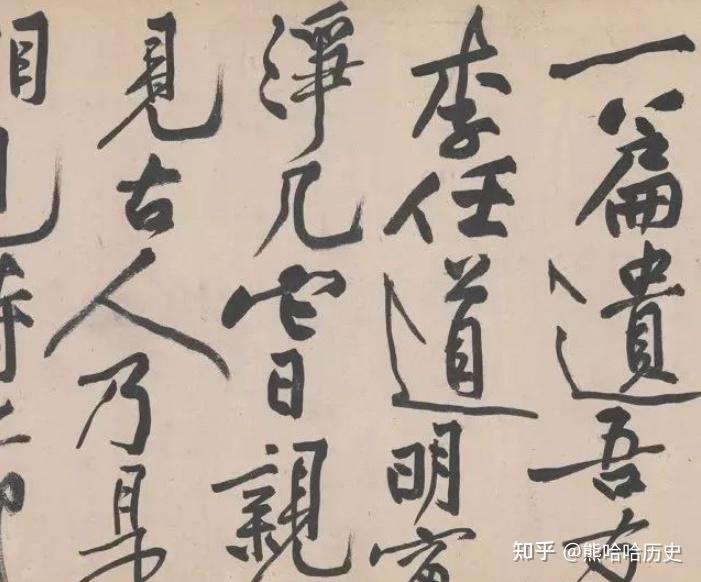 一篇遺吾友
李任道明窗
淨几它日親
見古人乃是
相見時節
知乎 @熊哈哈历史